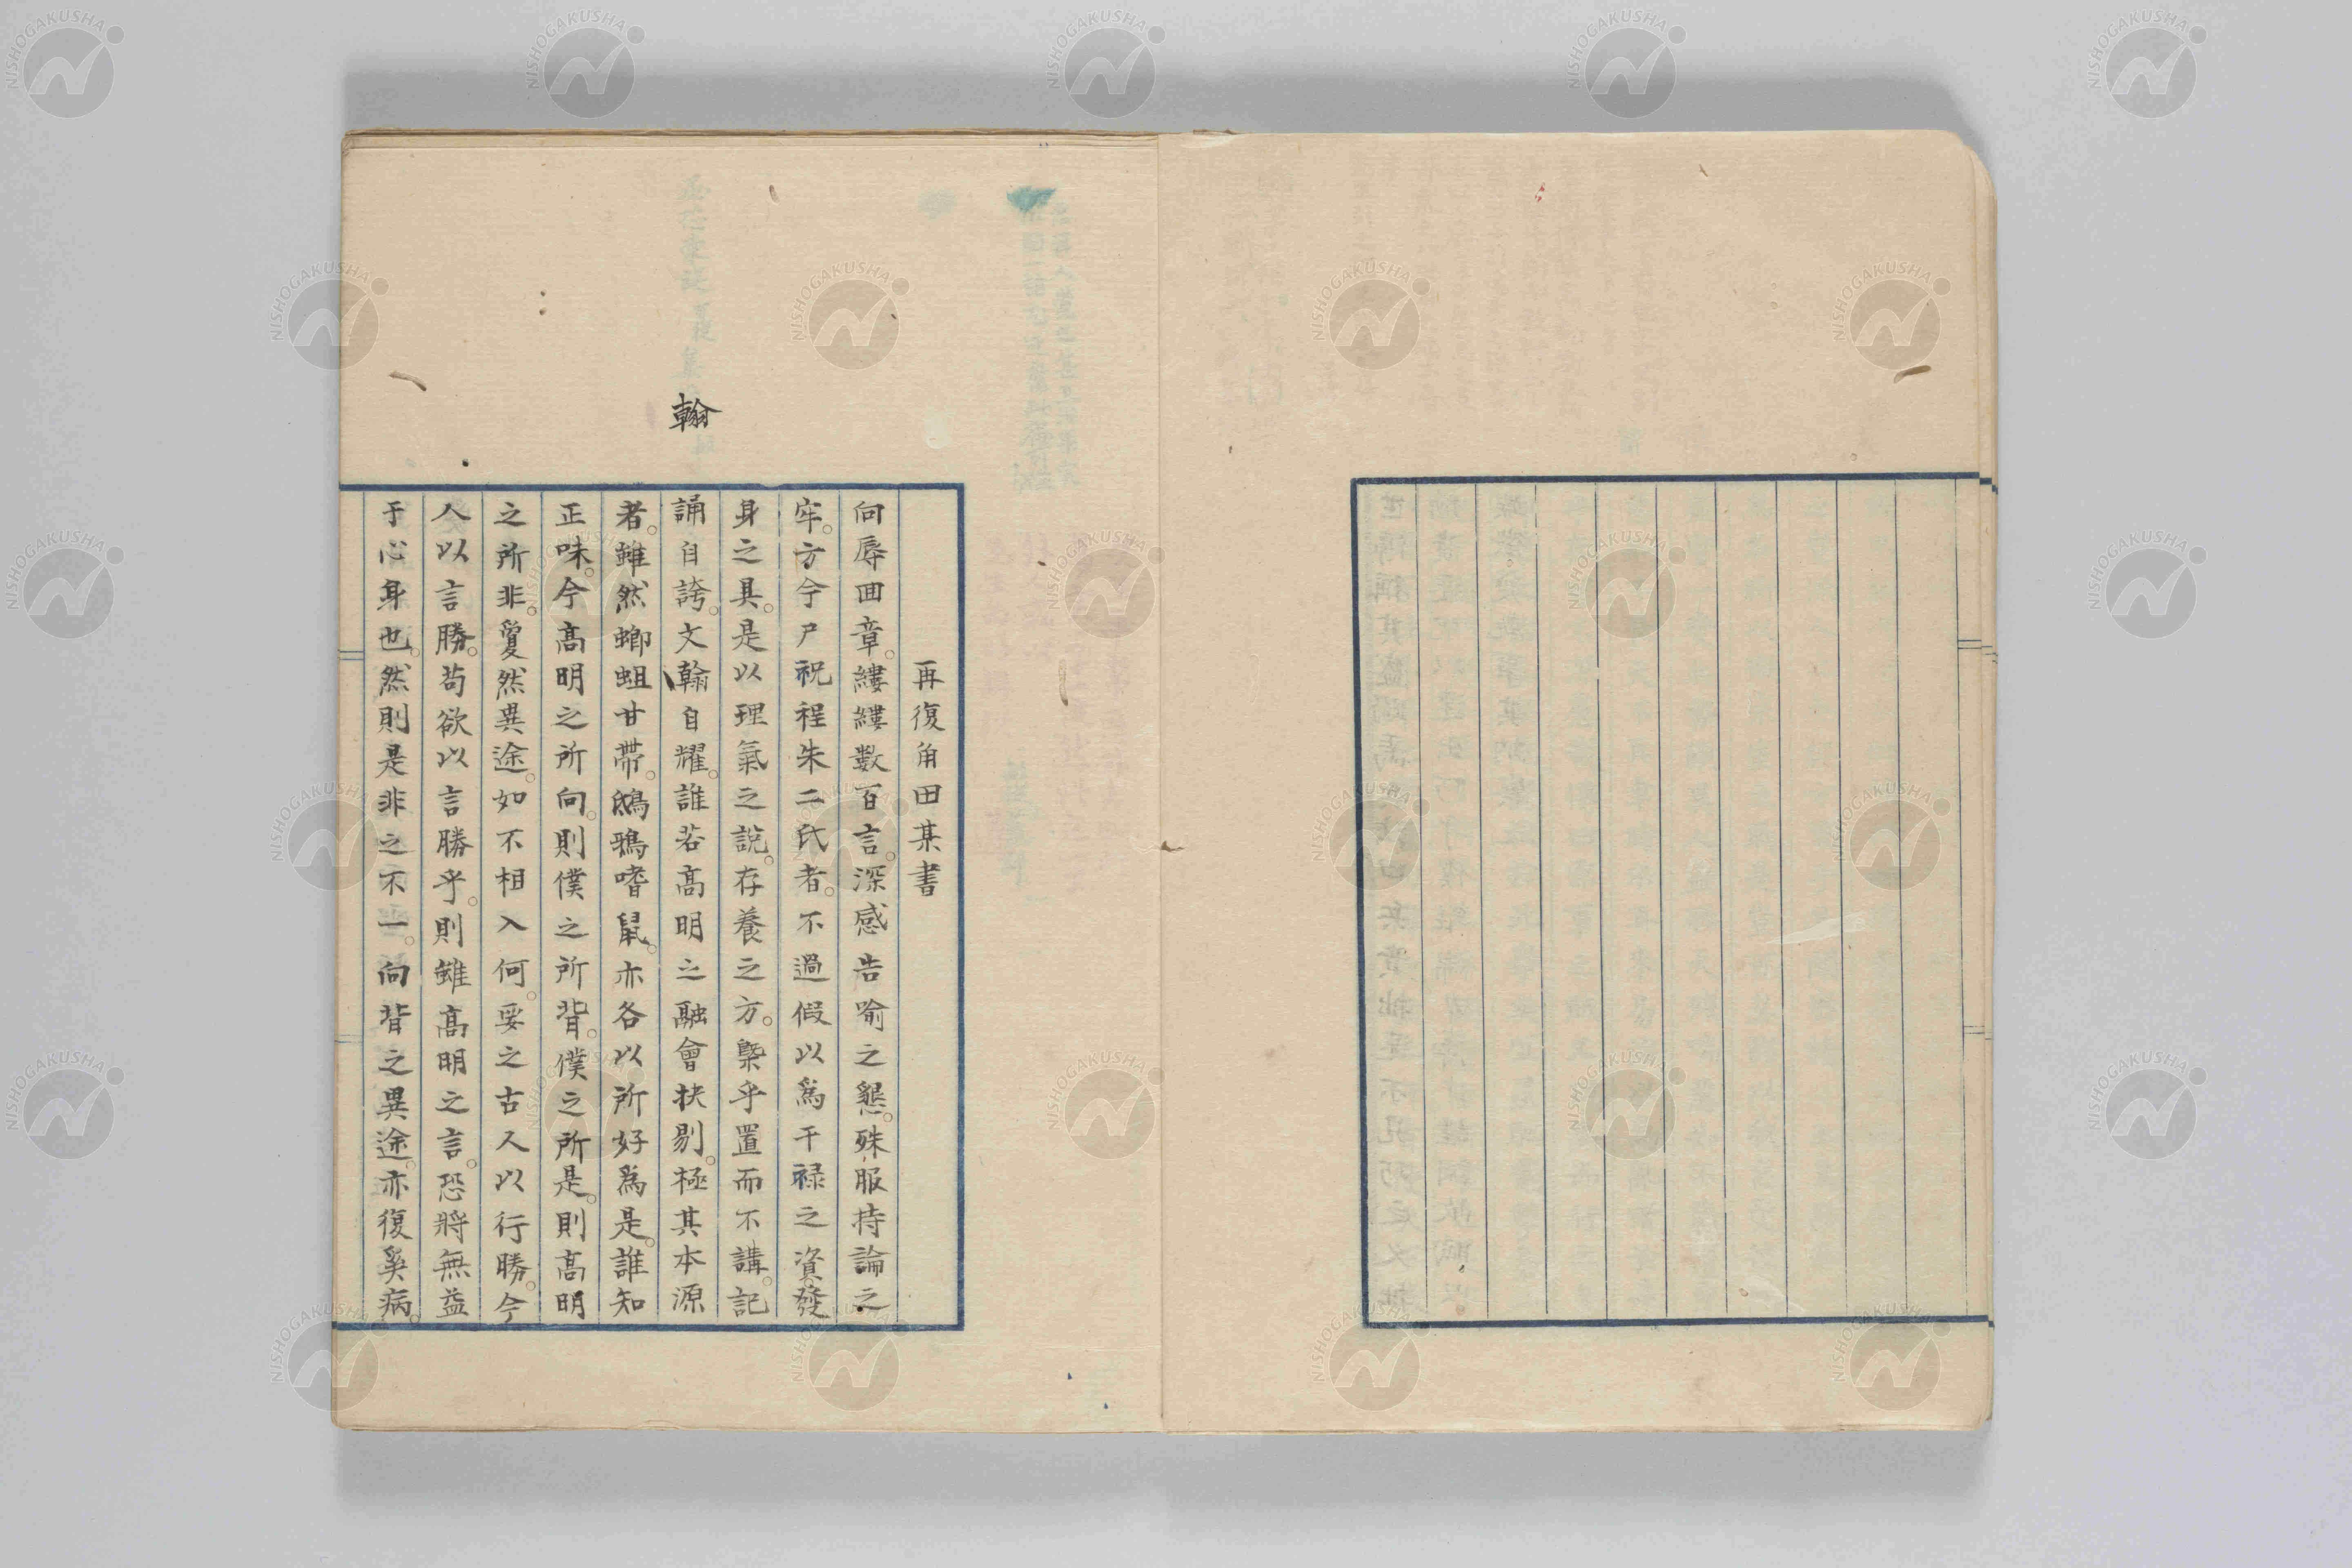 翰
再復角田某書
向辱回章。縷縷數百言。深感告喻之懇。殊服持論之
牢。方今尸祝程朱二氏者。不過假以爲干祿之資。發
身之具。是以理氣之說。存養之方。槩乎置而不講。記
誦自誇。文翰自耀。誰若高明之融會抉剔。極其本源
者。雖然蝍蛆甘帶。鴟鴉嗜鼠。亦各以所好爲是。誰知
正味。今高明之所向。則僕之所背。僕之所是。則高明
之所非。敻然異途。如不相入何。妥之古人以行勝。今
人以言勝。苟欲以言勝乎。則雖高明之言。恐將無益
于心身也。然則是非之不一。向背之異途。亦復奚病。
NISHOGAKUSHA